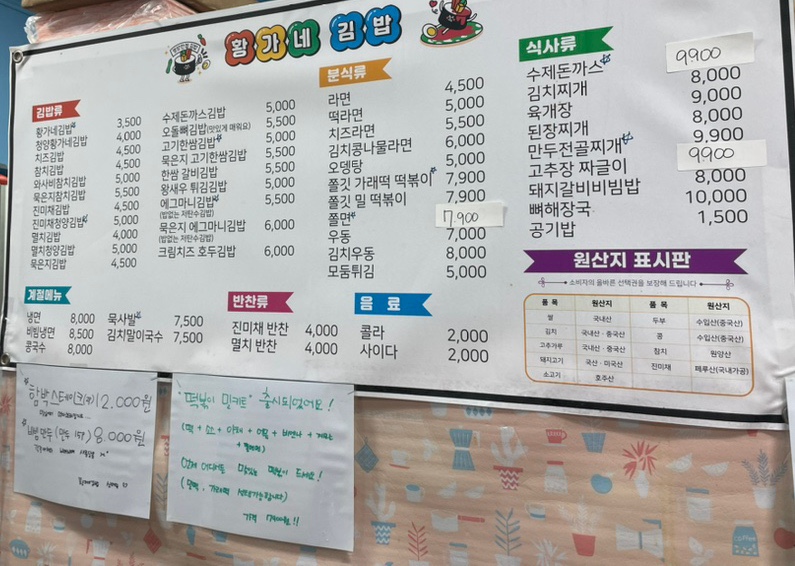 황가네 김밥
김밥류
황가네김밥 3,500
청양황가네김밥 4,000
치즈김밥 4,500
참치김밥 4,500
와사비참치김밥 5,000
묵은지참치김밥 5,500
진미채김밥 4,500
진미채청양김밥 5,000
멸치김밥 4,000
멸치청양김밥 5,000
묵은지김밥 4,500
수제돈까스김밥 5,000
오돌뼈김밥(맛있게 매워요) 5,000
고기한쌈김밥 5,500
묵은지 고기한쌈김밥 5,500
한쌈 갈비김밥 5,500
왕새우 튀김김밥 5,000
에그마니김밥 5,500
(밥없는 저탄수김밥)
묵은지 에그마니김밥 6,000
(밥없는 저탄수김밥)
크림치즈 호두김밥 6,000
분식류
라면 4,500
떡라면 5,000
치즈라면 5,500
김치콩나물라면 6,000
오뎅탕 5,000
쫄깃 가래떡 떡볶이 7,900
쫄깃 밀 떡볶이 7,900
쫄면 7.900
우동 7,000
김치우동 8,000
모둠튀김 5,000
식사류
수제돈까스 9900
김치찌개 8,000
육개장 9,000
된장찌개 8,000
만두전골찌개 9,900
고추장 짜글이 9900
돼지갈비비빔밥 8,000
뼈해장국 10,000
공기밥 1,500
계절메뉴
냉면 8,000
비빔냉면 8,500
콩국수 8,000
묵사발 7,500
김치말이국수 7,500
반찬류
진미채 반찬 4,000
멸치 반찬 4,000
음 료
콜라 2,000
사이다 2,000
원산지 표시판
소비자의 올바른 선택권을 보장해 드립니다
품 목 원산지 품 목 원산지
쌀 국내산 두부 수입산(중국산)
김치 국내산 · 중국산 콩 수입산(중국산)
고추가루 국내산 · 중국산 참치 원양산
돼지고기 국산 · 미국산 진미채 페루산(국내가공)
소고기 호주산
함박스테이크 12.000원
8.000원
"떡볶이 밀키트" 출시되었어요!